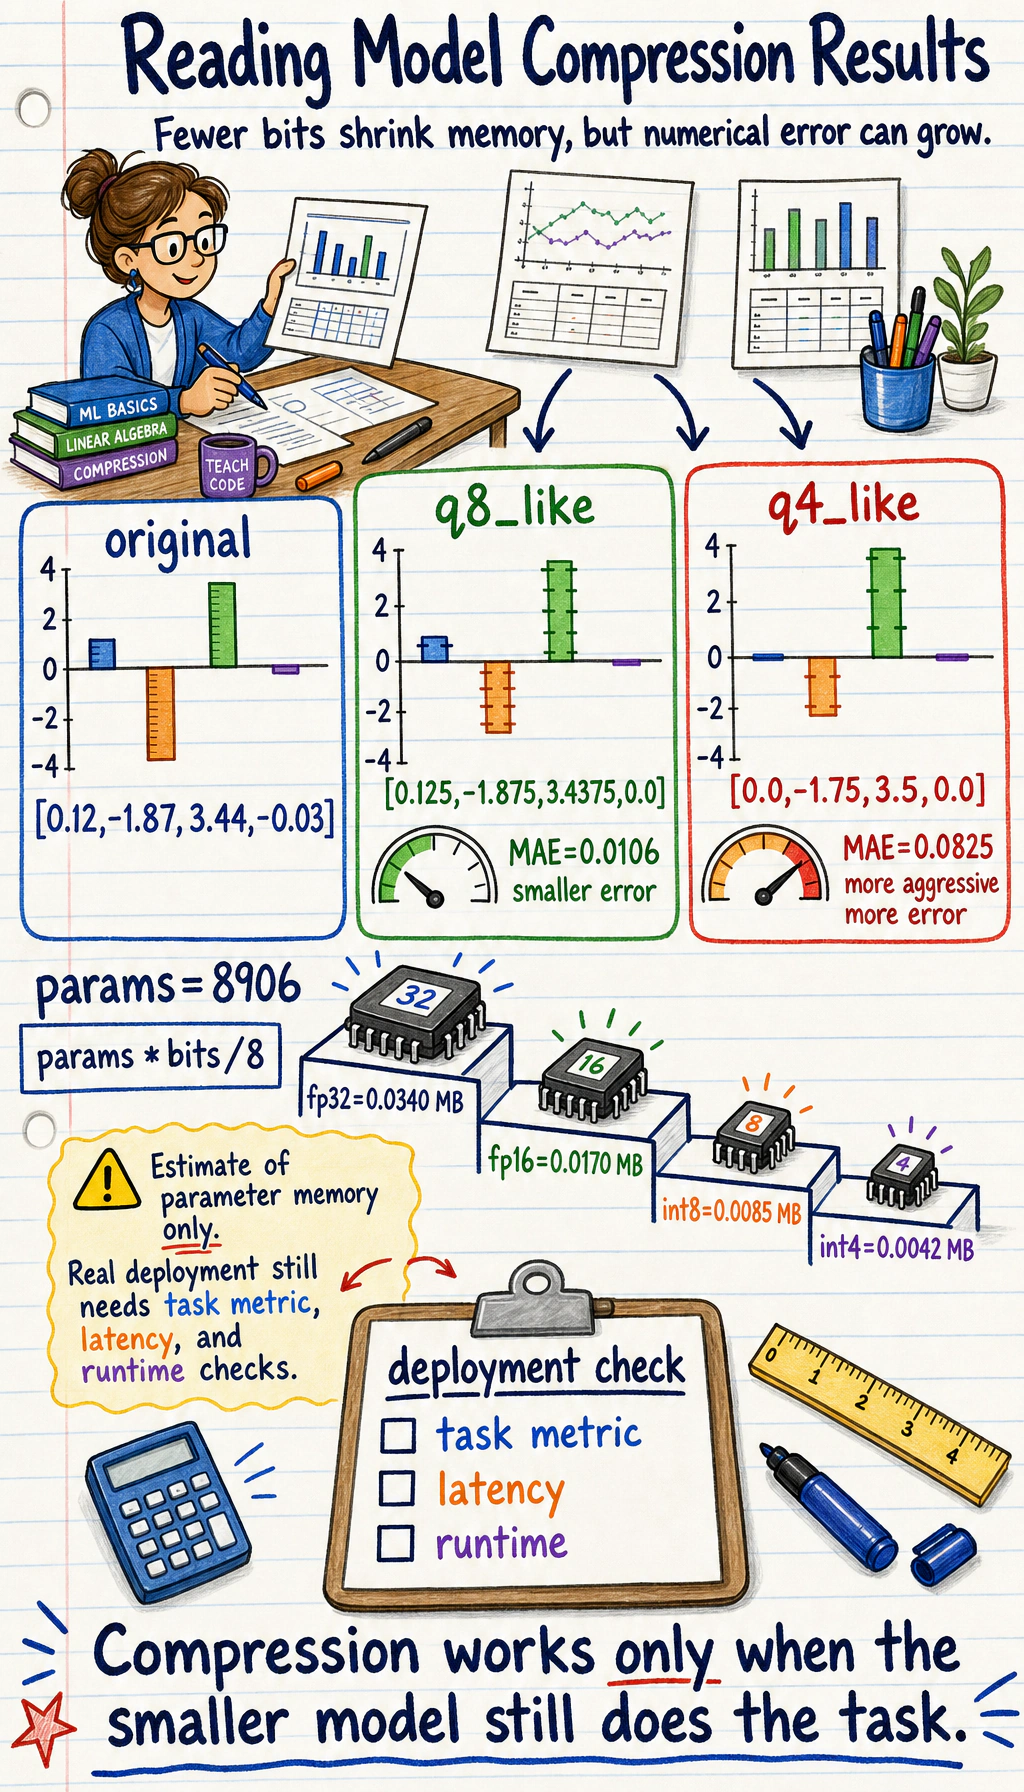 Reading Model Compression Results
Fewer bits shrink memory, but numerical error can grow.
ML BASICS
LINEAR ALGEBRA
COMPRESSION
TEACH
CODE
original
4
2
0
-2
-4
[0.12,-1.87, 3.44,-0.03]
q8_like
4
2
0
-2
-4
[0.125,-1.875,3.4375,0.0]
MAE=0.0106
smaller error
q4_like
4
2
0
-2
-4
[0.0,-1.75, 3.5, 0.0]
MAE=0.0825
more aggressive
more error
params=8906
params * bits/8
32
fp32=0.0340 MB
16
fp16=0.0170 MB
8
int8=0.0085 MB
4
int4=0.0042 MB
!
Estimate of
parameter memory
only.
Real deployment still
needs task metric,
latency, and
runtime checks.
deployment check
task metric
latency
runtime
0 1 2 3 4
Compression works only when the
smaller model still does the task.